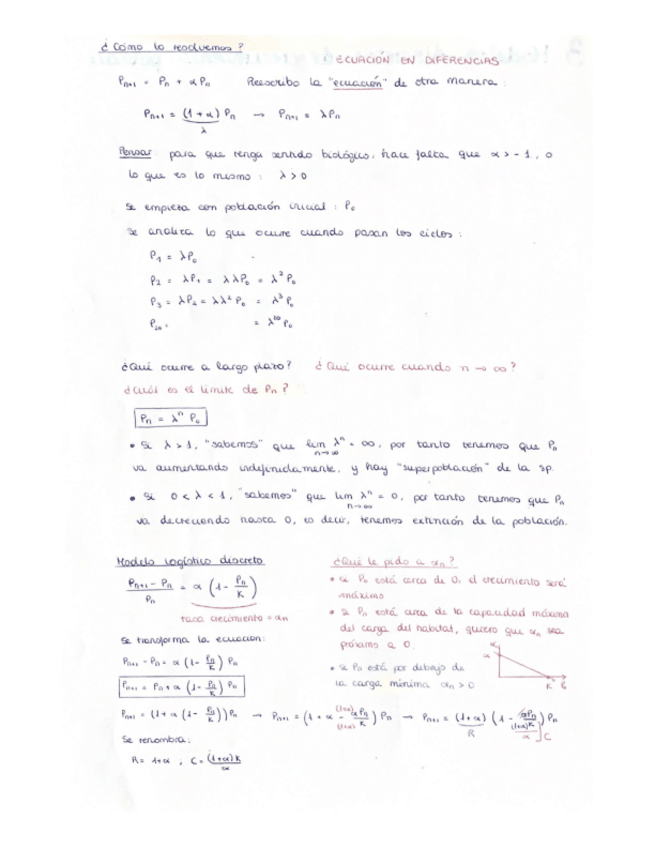 ¿Cómo lo resolvemos?
ECUACIÓN EN DIFERENCIAS
Pn+1 = Pn + αPn   Reescribo la "ecuación" de otra manera:
Pn+1 = (1+α) Pn → Pn+1 = λPn
λ
Pensar: para que tenga sentido biológico, hace falta que α > -1, o
lo que es lo mismo: λ > 0
Se empieza con población inicial: P0
Se analiza lo que ocurre cuando pasan los ciclos:
P1 = λP0
P2 = λP1 = λλP0 = λ²P0
P3 = λP2 = λλ²P0 = λ³P0
= λ²⁰P0
¿Qué ocurre a largo plazo? ¿Qué ocurre cuando n → ∞?
¿Cuál es el límite de Pn?
Pn = λⁿ P0
• Si λ > 1, "sabemos" que lim λⁿ = ∞, por tanto tenemos que Pn
n→∞
va aumentando indefinidamente, y hay "superpoblación" de la sp.
• Si 0 < λ < 1, "sabemos" que lim λⁿ = 0, por tanto tenemos que Pn
n→∞
va decreciendo hasta 0, es decir, tenemos extinción de la población.
Modelo logístico discreto
(Pn+1 - Pn)/Pn = α (1 - Pn/K)
tasa crecimiento = αn
Se transforma la ecuación:
Pn+1 - Pn = α (1 - Pn/K) Pn
Pn+1 = Pn + α (1 - Pn/K) Pn
¿Qué le pido a αn?
• si Pn está cerca de 0, el crecimiento será
máximo
• si Pn está cerca de la capacidad máxima
del carga del habitat, quiero que αn sea
próximo a 0.
• si Pn está por debajo de
la carga mínima αn > 0
α
K
Pn+1 = (1 + α (1 - Pn/K)) Pn → Pn+1 = (1 + α - (1+α)/(1+α) αPn/K) Pn → Pn+1 = (1+α) (1 - αPn/(1+α)K) Pn
R
α
C
Se renombra:
R = 1+α ; C = (1+α)K/α